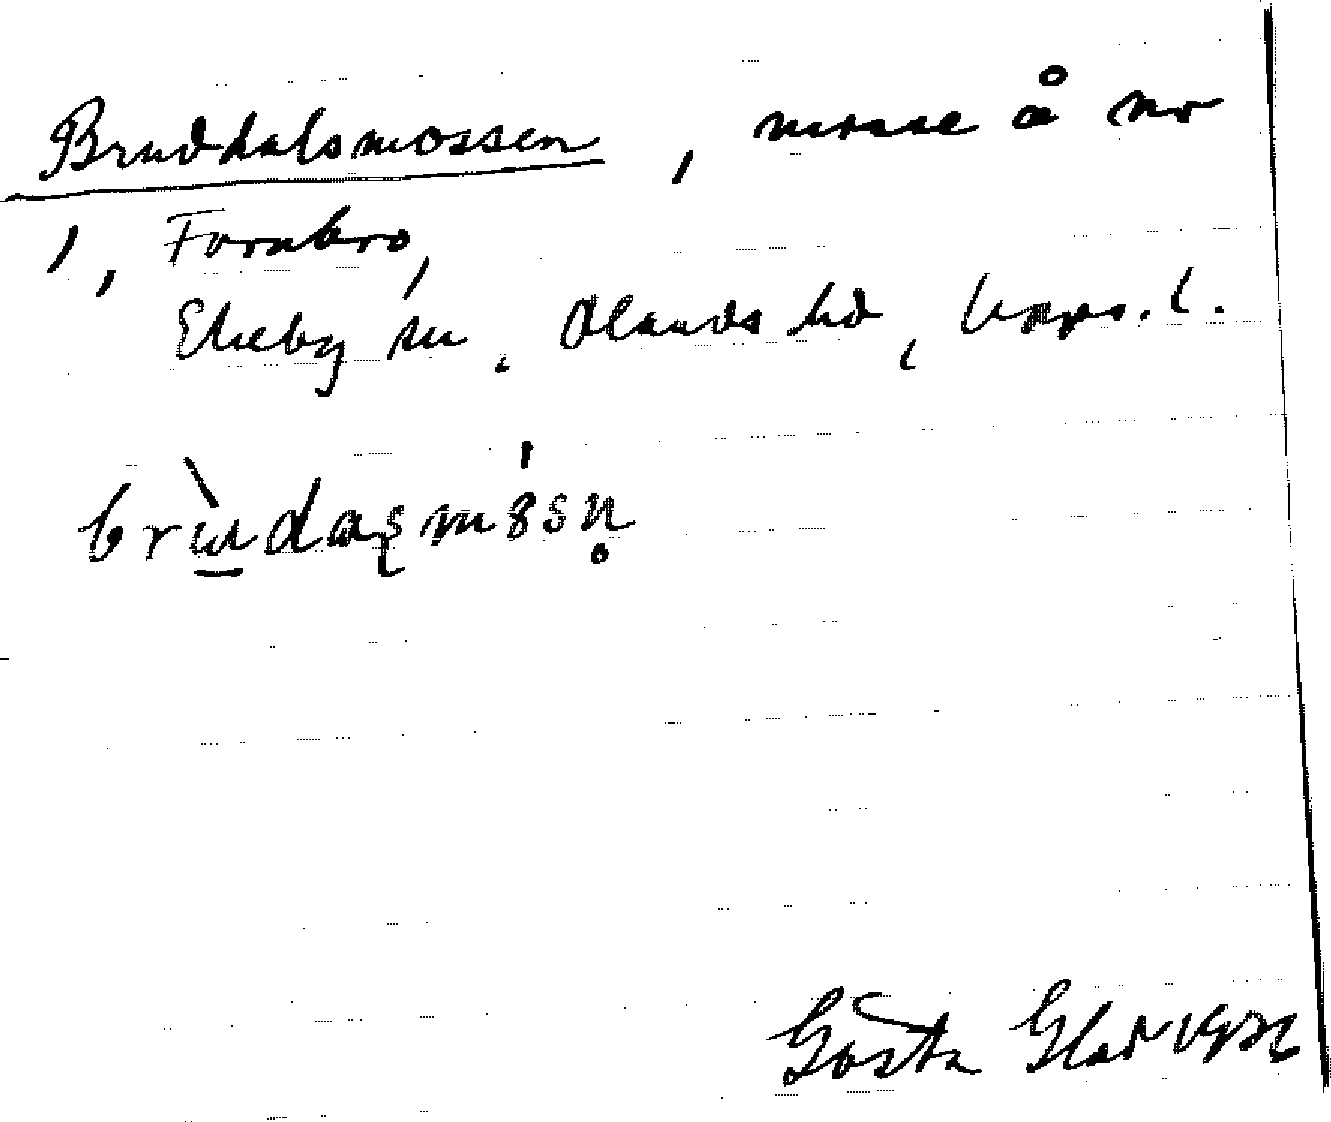 Bruddalsmossen, mosse å nr
1, Fornbro,
Ekeby sn. Olands hd, Upps. l.
brùdasmós̥n̥
Gösta